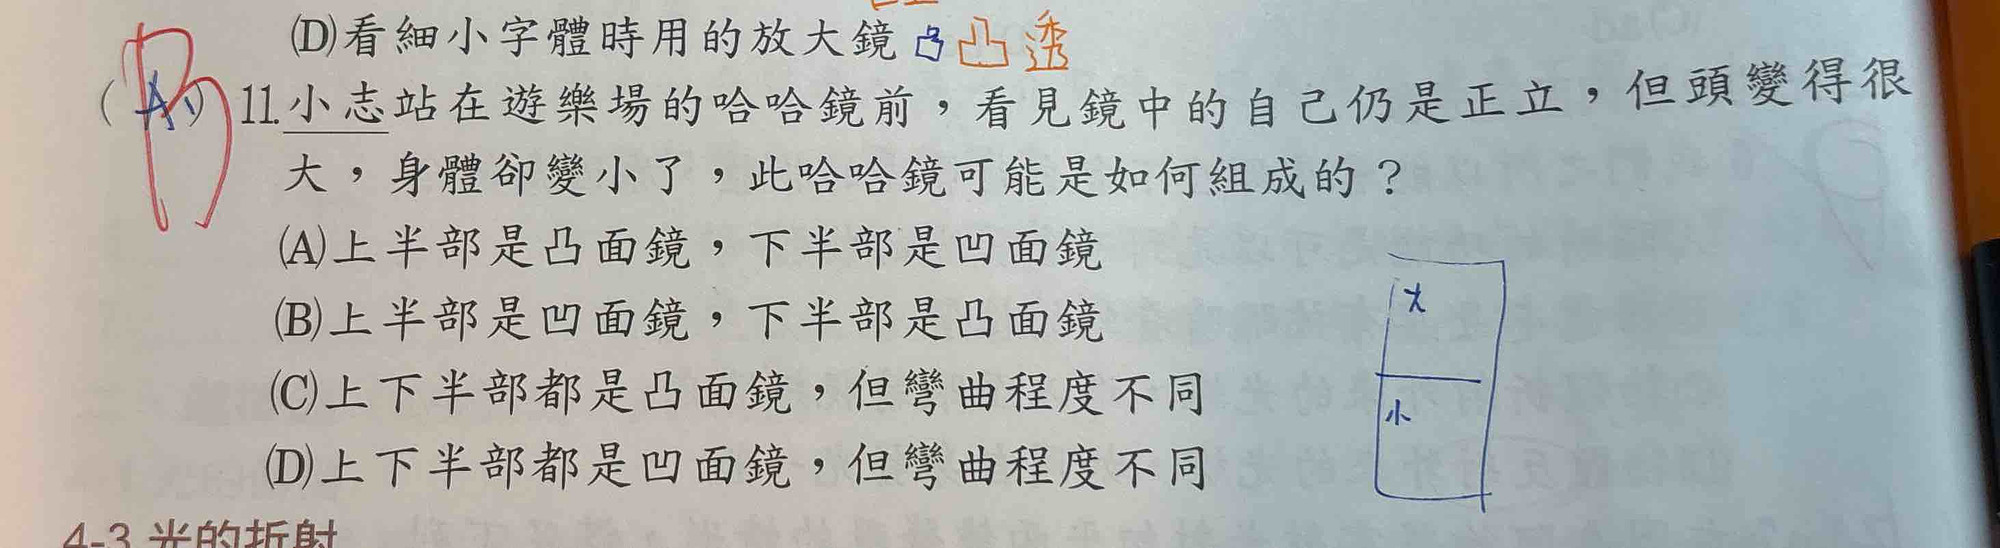 (D)看細小字體時用的放大鏡 凸 凸透
(A) B 11.小志站在遊樂場的哈哈鏡前,看見鏡中的自己仍是正立,但頭變得很
大,身體卻變小了,此哈哈鏡可能是如何組成的?
(A)上半部是凸面鏡,下半部是凹面鏡
(B)上半部是凹面鏡,下半部是凸面鏡
大
(C)上下半部都是凸面鏡,但彎曲程度不同
小
(D)上下半部都是凹面鏡,但彎曲程度不同
4-3 光的折射